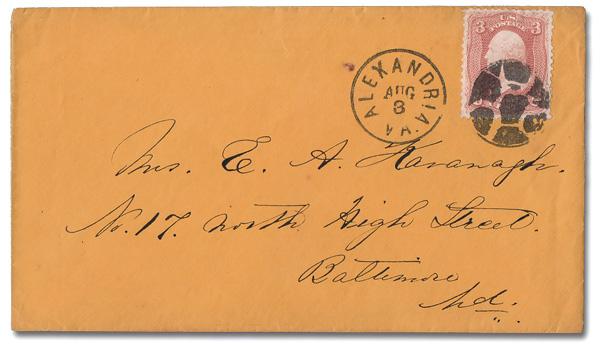 3 U.S. POSTAGE 3
ALEXANDRIA
AUG
3
VA.
Mrs. E. A. Kavanagh.
No. 17. North High Street.
Baltimore
Md.